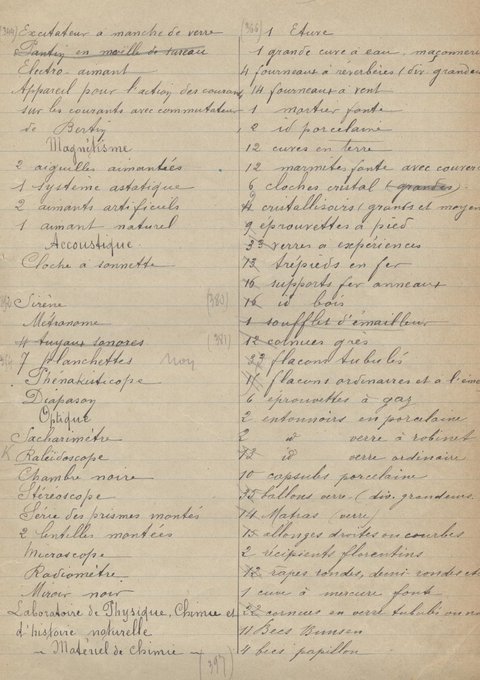 (344) Excitateur à manche de verre
Pantin en moëlle de sureau
Electro-aimant
Appareil pour l'action des courants
sur les courants avec commutateur
de Bertin
Magnétisme
2 aiguilles aimantées
1 système astatique
2 aimants artificiels
1 aimant naturel
Accoustique
Cloche à sonnette
Sirène (380)
Métronome
4 tuyaux sonores (381)
7 planchettes
Phénakisticope
Diapason
Optique
Sacharimètre
Kaléidoscope
Chambre noire
Stéréoscope
Série des prismes montés
2 lentilles montées
Microscope
Radiomètre
Miroir noir
Laboratoire de Physique, Chimie et
d'histoire naturelle
- Matériel de Chimie -
(397)
(366) 1 Etuve
1 grande cuve à eau, maçonnerie
4 fourneaux à réverbères (div. grandeurs
14 fourneaux à vent
1 mortier fonte
2 id porcelaine
12 cuves en terre
12 marmites fonte avec couver
6 cloches cristal (grandes)
4 cristallisoirs (grants et moyen
9 eprouvettes à pied
33 verres à expériences
13 trépieds en fer
16 supports fer anneaux
16 id bois
1 soufflet d'émailleur
12 cornues grès
23 flacons tubulés
flacons ordinaires et à l'éme
6 eprouvettes à gaz
2 entonnoirs en porcelaine
2 id verre à robinet
id verre ordinaire
10 capsules porcelaine
35 ballons verre (div. grandeurs.
14 Matras (verre)
13 allonges droites ou courbes
2 récipients florentins
12 rapes rondes, demi rondes et
1 cuve à mercure fonte
22 cornues en verre tubulés ou no
11 Becs Bunsen
4 becs papillon